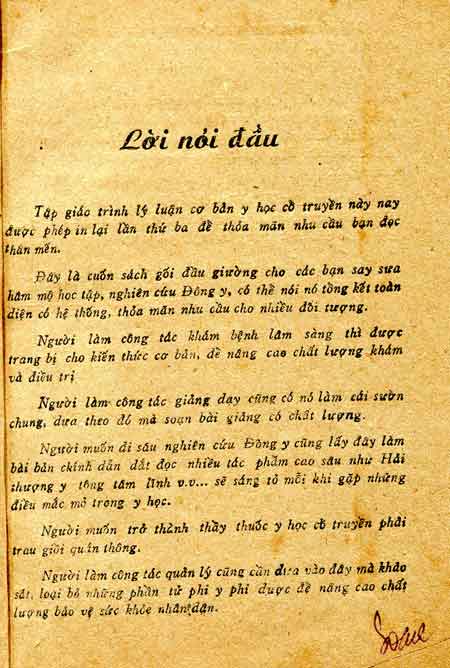 Lời nói đầu
Tập giáo trình lý luận cơ bản y học cổ truyền này nay
được phép in lại lần thứ ba để thỏa mãn nhu cầu bạn đọc
thân mến.
Đây là cuốn sách gối đầu giường cho các bạn say sưa
hâm mộ học tập, nghiên cứu Đông y, có thể nói nó tổng kết toàn
diện có hệ thống, thỏa mãn nhu cầu cho nhiều đối tượng.
Người làm công tác khám bệnh lâm sàng thì được
trang bị cho kiến thức cơ bản, để nâng cao chất lượng khám
và điều trị
Người làm công tác giảng dạy cũng có nó làm cái sườn
chung, dựa theo đó mà soạn bài giảng có chất lượng.
Người muốn đi sâu nghiên cứu Đông y cũng lấy đây làm
bài bản chính dẫn dắt đọc nhiều tác phẩm cao sâu như Hải
thượng y tông tâm lĩnh v.v... sẽ sáng tỏ mỗi khi gặp những
điều mắc mỏ trong y học.
Người muốn trở thành thầy thuốc y học cổ truyền phải
trau giồi quán thông.
Người làm công tác quản lý cũng cần dựa vào đây mà khảo
sát, loại bỏ những phần tử phi y phi dược để nâng cao chất
lượng bảo vệ sức khỏe nhân dân.